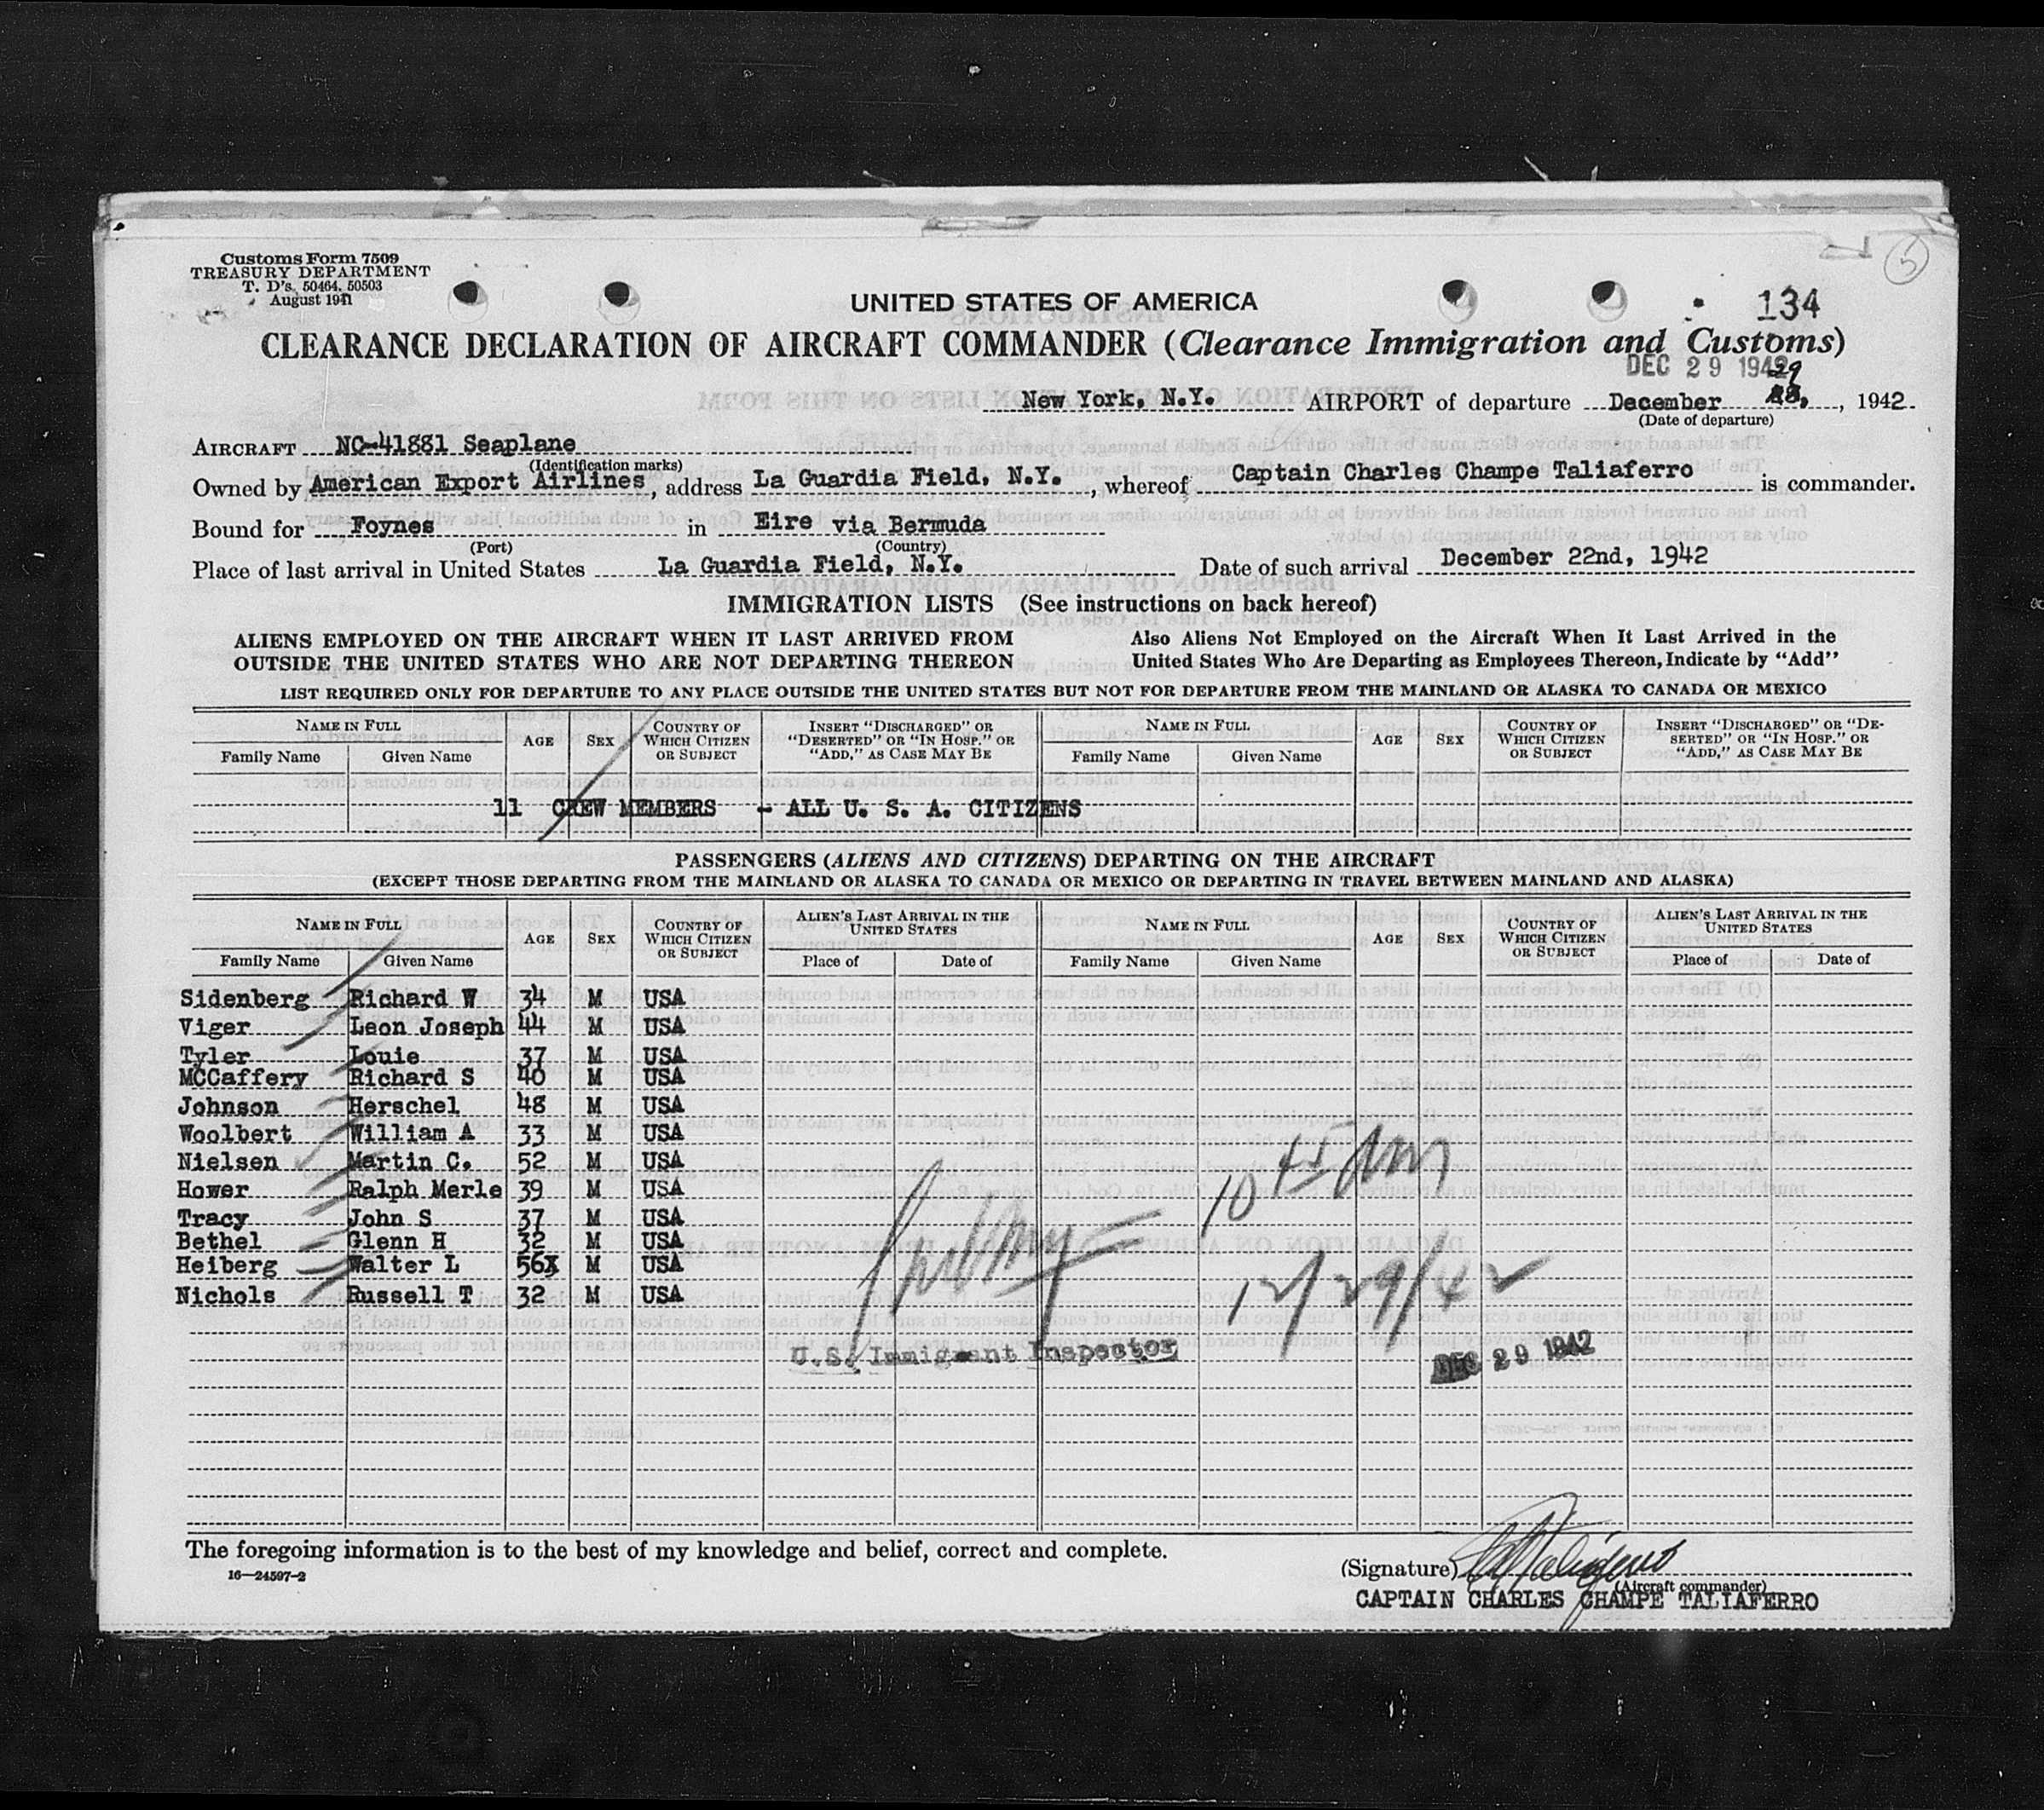 5
Customs Form 7509
TREASURY DEPARTMENT
T. D's. 50464, 50503
August 1941
134
UNITED STATES OF AMERICA
CLEARANCE DECLARATION OF AIRCRAFT COMMANDER (Clearance Immigration and Customs)
DEC 29 1942
29
New York, N.Y. AIRPORT of departure December 28, , 1942
(Date of departure)
AIRCRAFT NC-41881 Seaplane
(Identification marks)
Owned by American Export Airlines, address La Guardia Field, N.Y. , whereof Captain Charles Champe Taliaferro is commander.
Bound for Foynes in Eire via Bermuda
(Port) (Country)
Place of last arrival in United States La Guardia Field, N.Y. Date of such arrival December 22nd, 1942
IMMIGRATION LISTS (See instructions on back hereof)
ALIENS EMPLOYED ON THE AIRCRAFT WHEN IT LAST ARRIVED FROM OUTSIDE THE UNITED STATES WHO ARE NOT DEPARTING THEREON
Also Aliens Not Employed on the Aircraft When It Last Arrived in the United States Who Are Departing as Employees Thereon, Indicate by "Add"
LIST REQUIRED ONLY FOR DEPARTURE TO ANY PLACE OUTSIDE THE UNITED STATES BUT NOT FOR DEPARTURE FROM THE MAINLAND OR ALASKA TO CANADA OR MEXICO
NAME IN FULL AGE SEX COUNTRY OF WHICH CITIZEN OR SUBJECT INSERT "DISCHARGED" OR "DESERTED" OR "IN HOSP." OR "ADD," AS CASE MAY BE NAME IN FULL AGE SEX COUNTRY OF WHICH CITIZEN OR SUBJECT INSERT "DISCHARGED" OR "DE-SERTED" OR "IN HOSP." OR "ADD," AS CASE MAY BE
Family Name Given Name Family Name Given Name
11 CREW MEMBERS - ALL U. S. A. CITIZENS
PASSENGERS (ALIENS AND CITIZENS) DEPARTING ON THE AIRCRAFT
(EXCEPT THOSE DEPARTING FROM THE MAINLAND OR ALASKA TO CANADA OR MEXICO OR DEPARTING IN TRAVEL BETWEEN MAINLAND AND ALASKA)
NAME IN FULL AGE SEX COUNTRY OF WHICH CITIZEN OR SUBJECT ALIEN'S LAST ARRIVAL IN THE UNITED STATES NAME IN FULL AGE SEX COUNTRY OF WHICH CITIZEN OR SUBJECT ALIEN'S LAST ARRIVAL IN THE UNITED STATES
Family Name Given Name Place of Date of Family Name Given Name Place of Date of
Sidenberg Richard W 34 M USA
Viger Leon Joseph 44 M USA
Tyler Louie 37 M USA
MCCaffery Richard S 40 M USA
Johnson Herschel 48 M USA
Woolbert William A 33 M USA
Nielsen Martin C. 52 M USA
Hower Ralph Merle 39 M USA
Tracy John S 37 M USA
Bethel Glenn H 32 M USA
Heiberg Walter L 56X M USA
Nichols Russell T 32 M USA
10 45 AM
12/29/42
U.S. Immigrant Inspector
DEC 29 1942
The foregoing information is to the best of my knowledge and belief, correct and complete.
16—24597-2
(Signature) CC Taliaferro
(Aircraft commander)
CAPTAIN CHARLES CHAMPE TALIAFERRO